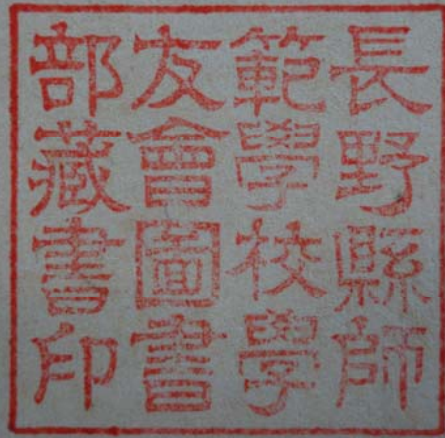 長野縣師
範學校學
友會圖書
部藏書印